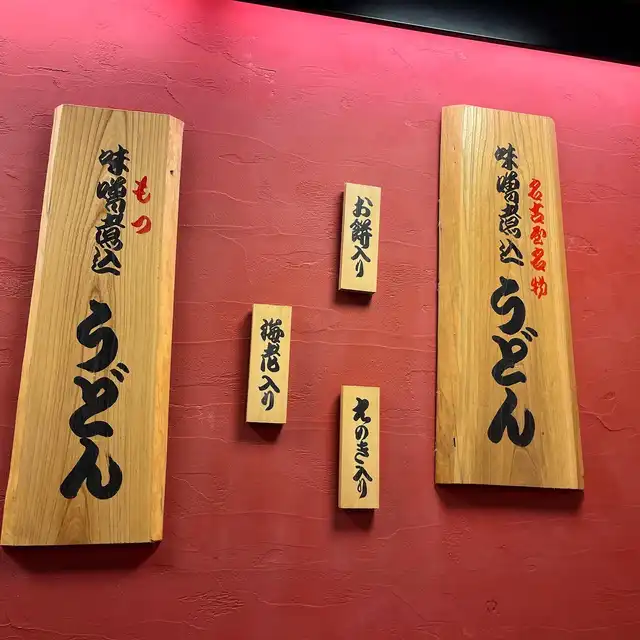 名古屋名物
味噌煮込
うどん
お餅入り
えのき入り
海老入り
もつ
味噌煮込
うどん